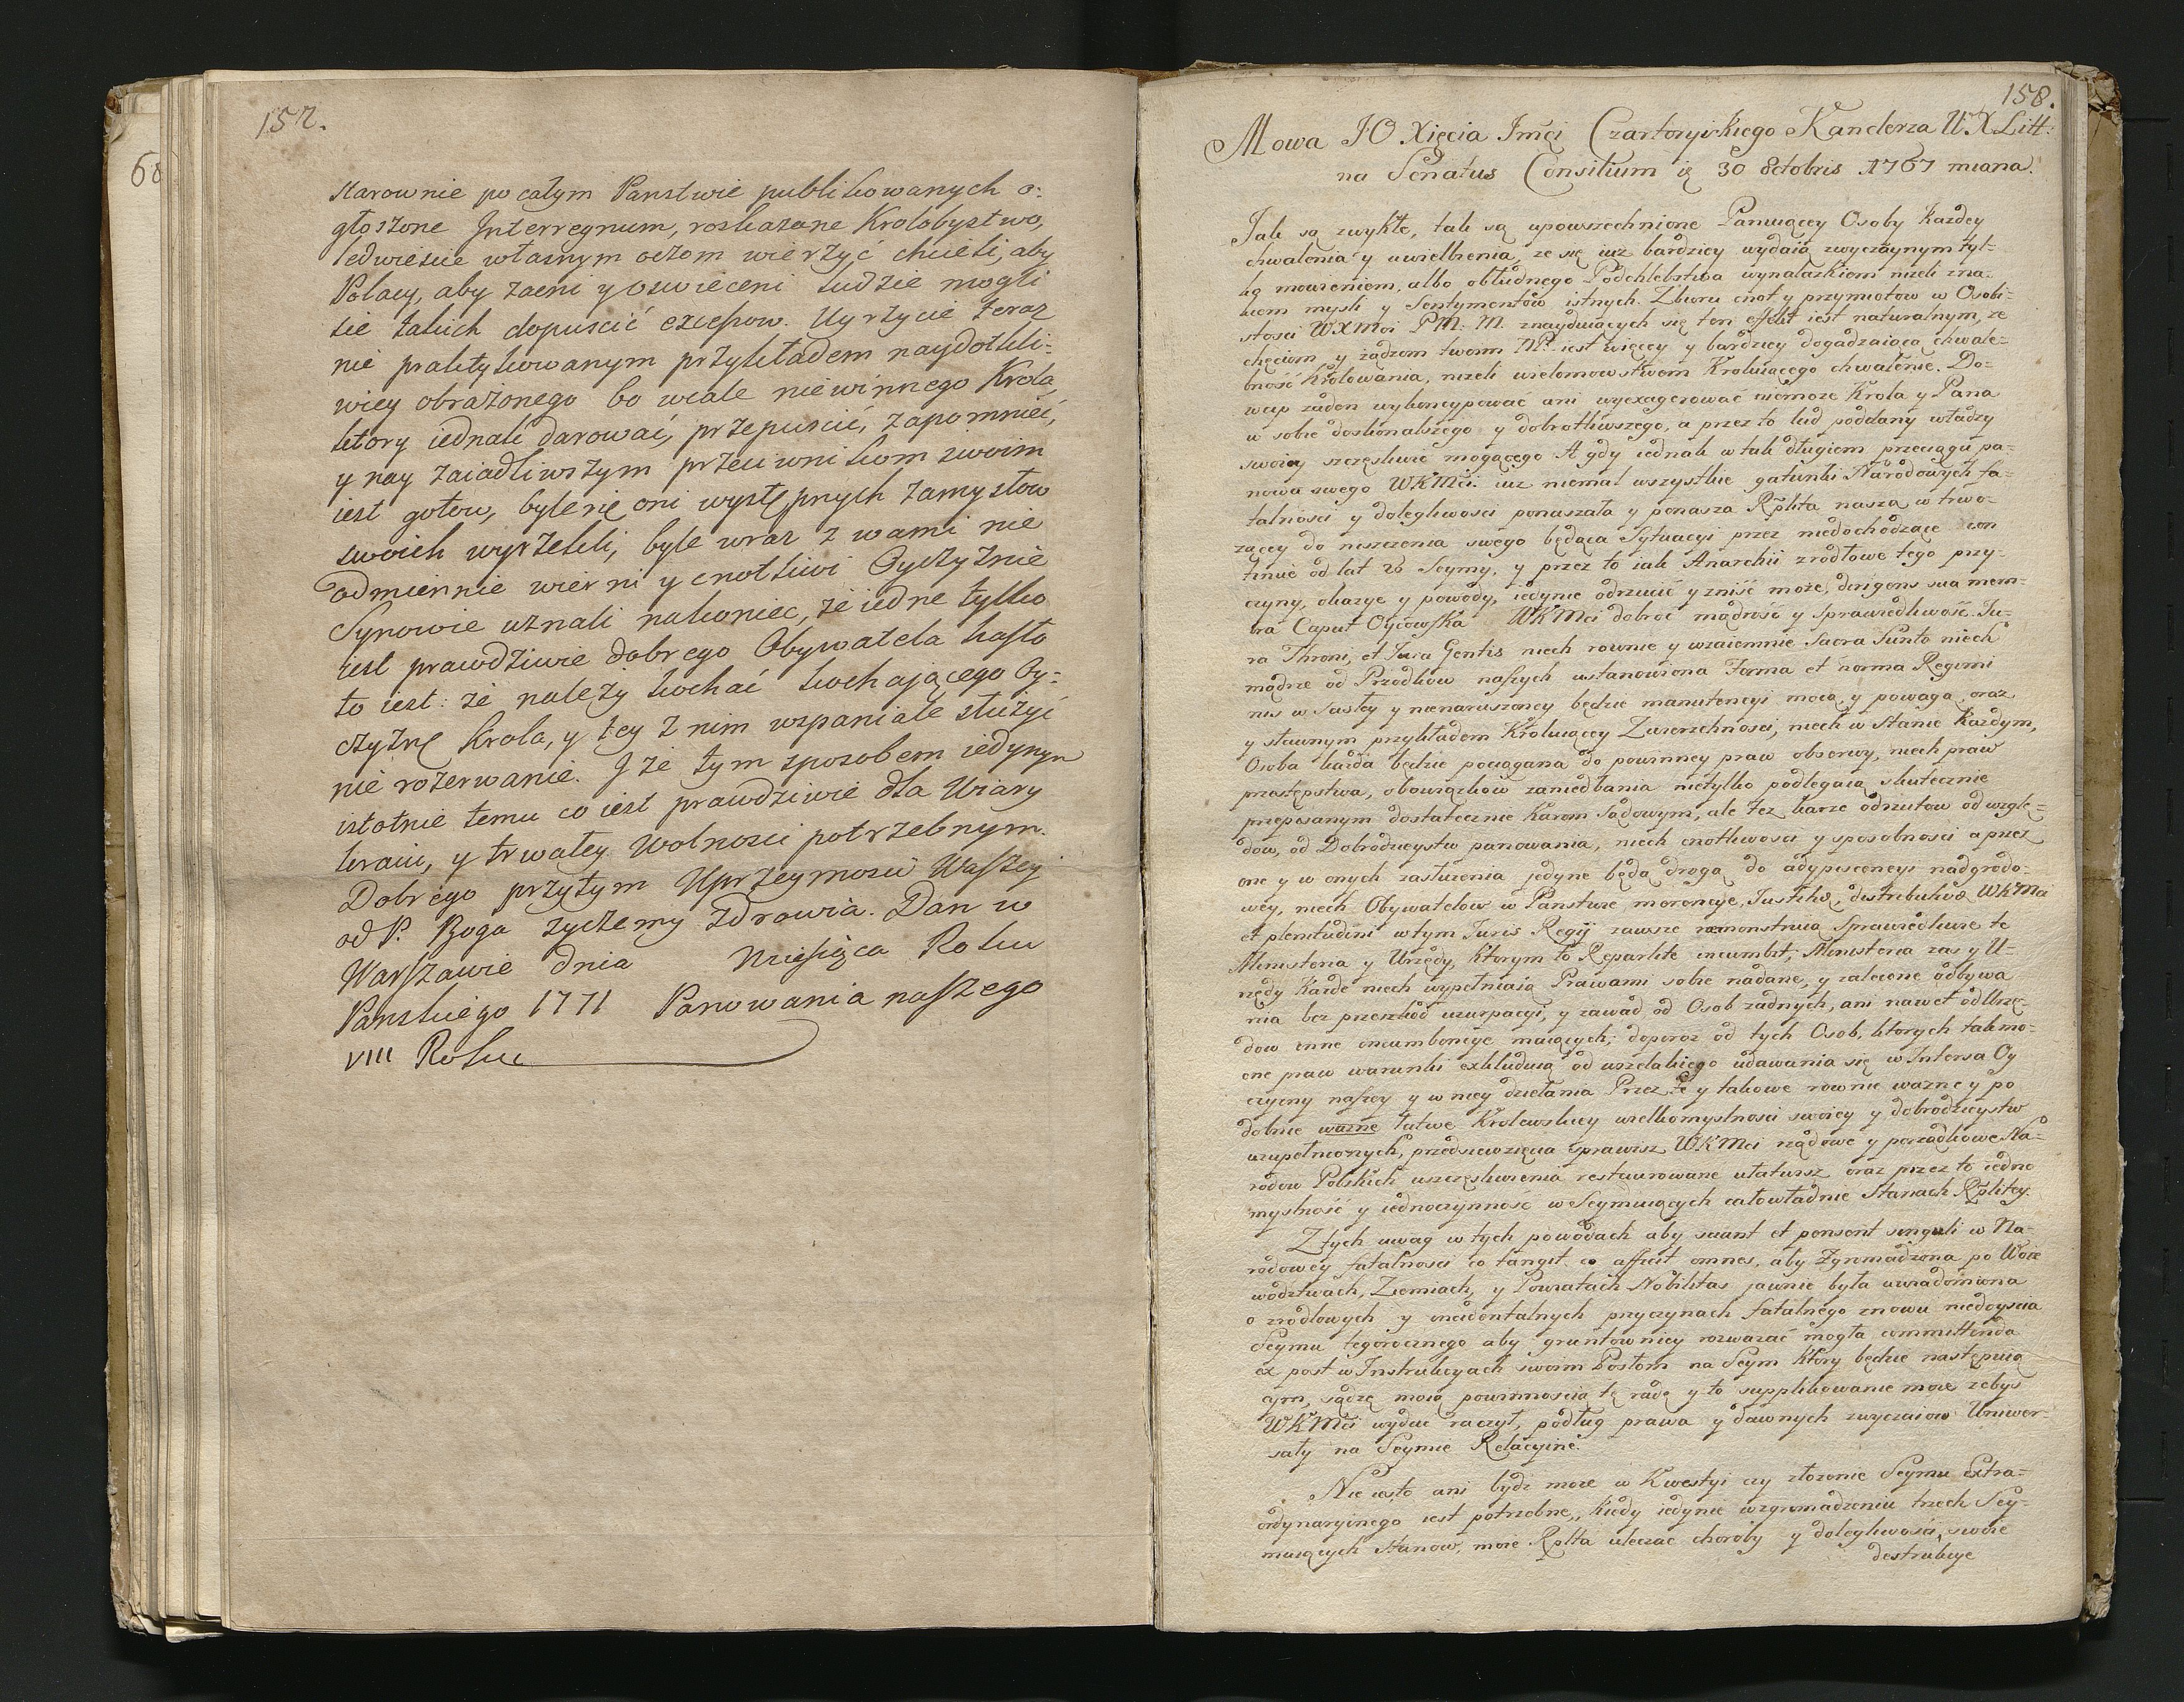 157.
starownie po całym Panstwie publikowanych o:
głoszone Interregnum, roskazane Krolobystwo,
ledwiesie własnym oczom wierzyć chcieli, aby
Polacy, aby zacni y oswieceni Ludzie mogli
sie takich dopuscić excesow. Uyrzycie teraz
nie praktykowanym przykładem naydotkli-
wiey obrażonego bo wcale niewinnego Krola,
ktory iednak darować, przepuscić, zapomnieć,
y nay zaiadliwszym przeciwnikom swoim
iest gotow, byle się oni występnych zamysłow
swoich wyrzekli, byle wraz z wami nie
odmiennie wierni y cnotliwi Oyczyznie
Synowie uznali nakoniec, że iedne tylko
iest prawdziwie dobrego Obywatela hasło
to iest: że należy kochać kochającego Oy-
czyznę Krola, y tey z nim wspaniale służyć
nie rozerwanie. I że tym sposobem iedynym
istotnie temu co iest prawdziwie dla Wiary
kraiu, y trwałey Wolnosci potrzebnym.
Dobrego przytym Uprzeymosci Waszey
od P. Boga zyczemy zdrowia. Dan w
Warszawie dnia Miesiąca Roku
Panskiego 1771 Panowania naszego
VIII Roku
158.
Mowa JO Xięcia Imći Czartoryiskiego Kanclerza W. X Litt:
na Senatus Consilium die 30 8ctobris 1767 miana.
Jak są zwykłe, tak są upowszechnione Panuiącey Osoby każdey
chwalenia y uwielbienia, ze się iuż bardziey wydaią zwyczaynym tyl-
ko mowieniem, albo obłudnego Podchlebstwa wynalazkiem niżeli zna-
kiem mysli y Sentymentow istnych. Zbioru cnot y przymiotow w Osobi-
stosci WKMci PM. M. znayduiących się ten effekt iest naturalnym, ze
chęciom y żądzom twoim MP. iest więcey y bardziey dogadzaiąca chwale-
bność Krolowania, niżeli wielomowstwem Kroluiącego chwalenie. Do-
wcip żaden wykoncypować ani wyexagerować niemoze Krola y Pana
w sobie doskonalszego y dobrotliwszego, a przez to lud poddany władzy
swoiey szczęsliwić mogącego A gdy iednak w tak długiem przeciągu pa-
nowa swego WKMci. iuz niemal wszystkie gatunki Narodowych fa-
talnosci y dolegliwosci ponaszała y ponasza Rplita nasza, w trwo-
żącey do niszczenia swego będąca Sytuacyi przez niedochodzące con
tinue od lat 26 Seymy, y przez to iak Anarchii zrodłowe tego przy-
czyny, okazye y powody, iedynie odrzucić y znisć może, dirigens sua mem-
bra Caput Oycowska WKMci dobroć mądrość y sprawiedliwość. Ju-
ra Throni, et Jura Gentis niech rownie y wzaiemnie Sacra Sunto niech
mądrze od Przodkow naszych ustanowiona Forma et norma Regimi
nis w całey y nienaruszoney będzie manutencyi mocą y powagą oraz
y sławnym przykładem Kroluiącey Zwierzchnosci, niech w stanie każdym,
Osoba każda będzie pociągana do powinney praw obserwy, niech praw
przestępstwa, obowiązkow zaniedbania nietylko podlegaią skutecznie
przepisanym dostatecznie Karom Sądowym, ale też karze odrzutow od wzglę-
dow, od Dobrodzieystw panowania, niech cnotliwosci y sposobnosci a przez
one y w onych zasłużenia jedyne będą drogą do adypiscencyi nadgrodo-
wey, niech Obywatelow w Panstwie morencye, Justitią, distributivą WKMci
et plenitudini w tym Juris Regij zawsze remonstruią sprawiedliwie te
Ministeria y Urzędy, ktorym to Reparlite incumbit, Ministeria zas y U-
rzędy Każde niech wypełniaią Prawami sobie nadane, y zalecone odbywa
nia bez przeszkod uzurpacyi, y zawad od Osob żadnych, ani nawet od Urzę-
dow inne incumbencye maiących, doperoz od tych Osob, ktorych takimo-
cne praw warunki exkluduią od wszelakiego udawania się w Interssa Oy
czyzny naszey y w niey działania Przez te y takowe rownie ważne y po
dobnie ważne łatwe Krolewskiey wielkomyslnosci swoiey y dobrodzieystw
uzupełnionych, przedsiewzięcia sprawisz WKMci rządowe y porządkowe Na-
rodow Polskich uszczęsliwienia restaurowane ułatwisz oraz przez to iedno
myslność y iednoczynność w Seymuiących całowładnie Stanach Rplitey.
Z tych uwag w tych powodach aby sciant et pensent singuli w Na-
rodowey fatalnosci co tangit co afficit omnes, aby Zgromadzona po Woie
wodztwach, Ziemiach, y Powiatach Nobilitas jawnie była uwiadomiona
o zrodłowych y incidentalnych przyczynach fatalnego znowu niedoyscia
Seymu tegorocznego aby gruntowniey rozważać mogła committenda
ex post w Instrukcyach swoim Posłom na Seym ktory będzie następuią
cym, sądzę moią powinnoscią tę radę y to supplikowanie moie żebyś
WKMci wydać raczył, podług prawa y dawnych zwyczaiow Uniwer-
sały na Seymie Relacyine.
Nie iest to ani bydz może w Kwestyi czy złożenie Seymu Extra-
ordynaryinego iest potrzebne, kiedy iedynie w zgromadzeniu trzech Sey-
muiących Stanow, może Rplta uleczać choroby y dolegliwosci swoie
destrukcye